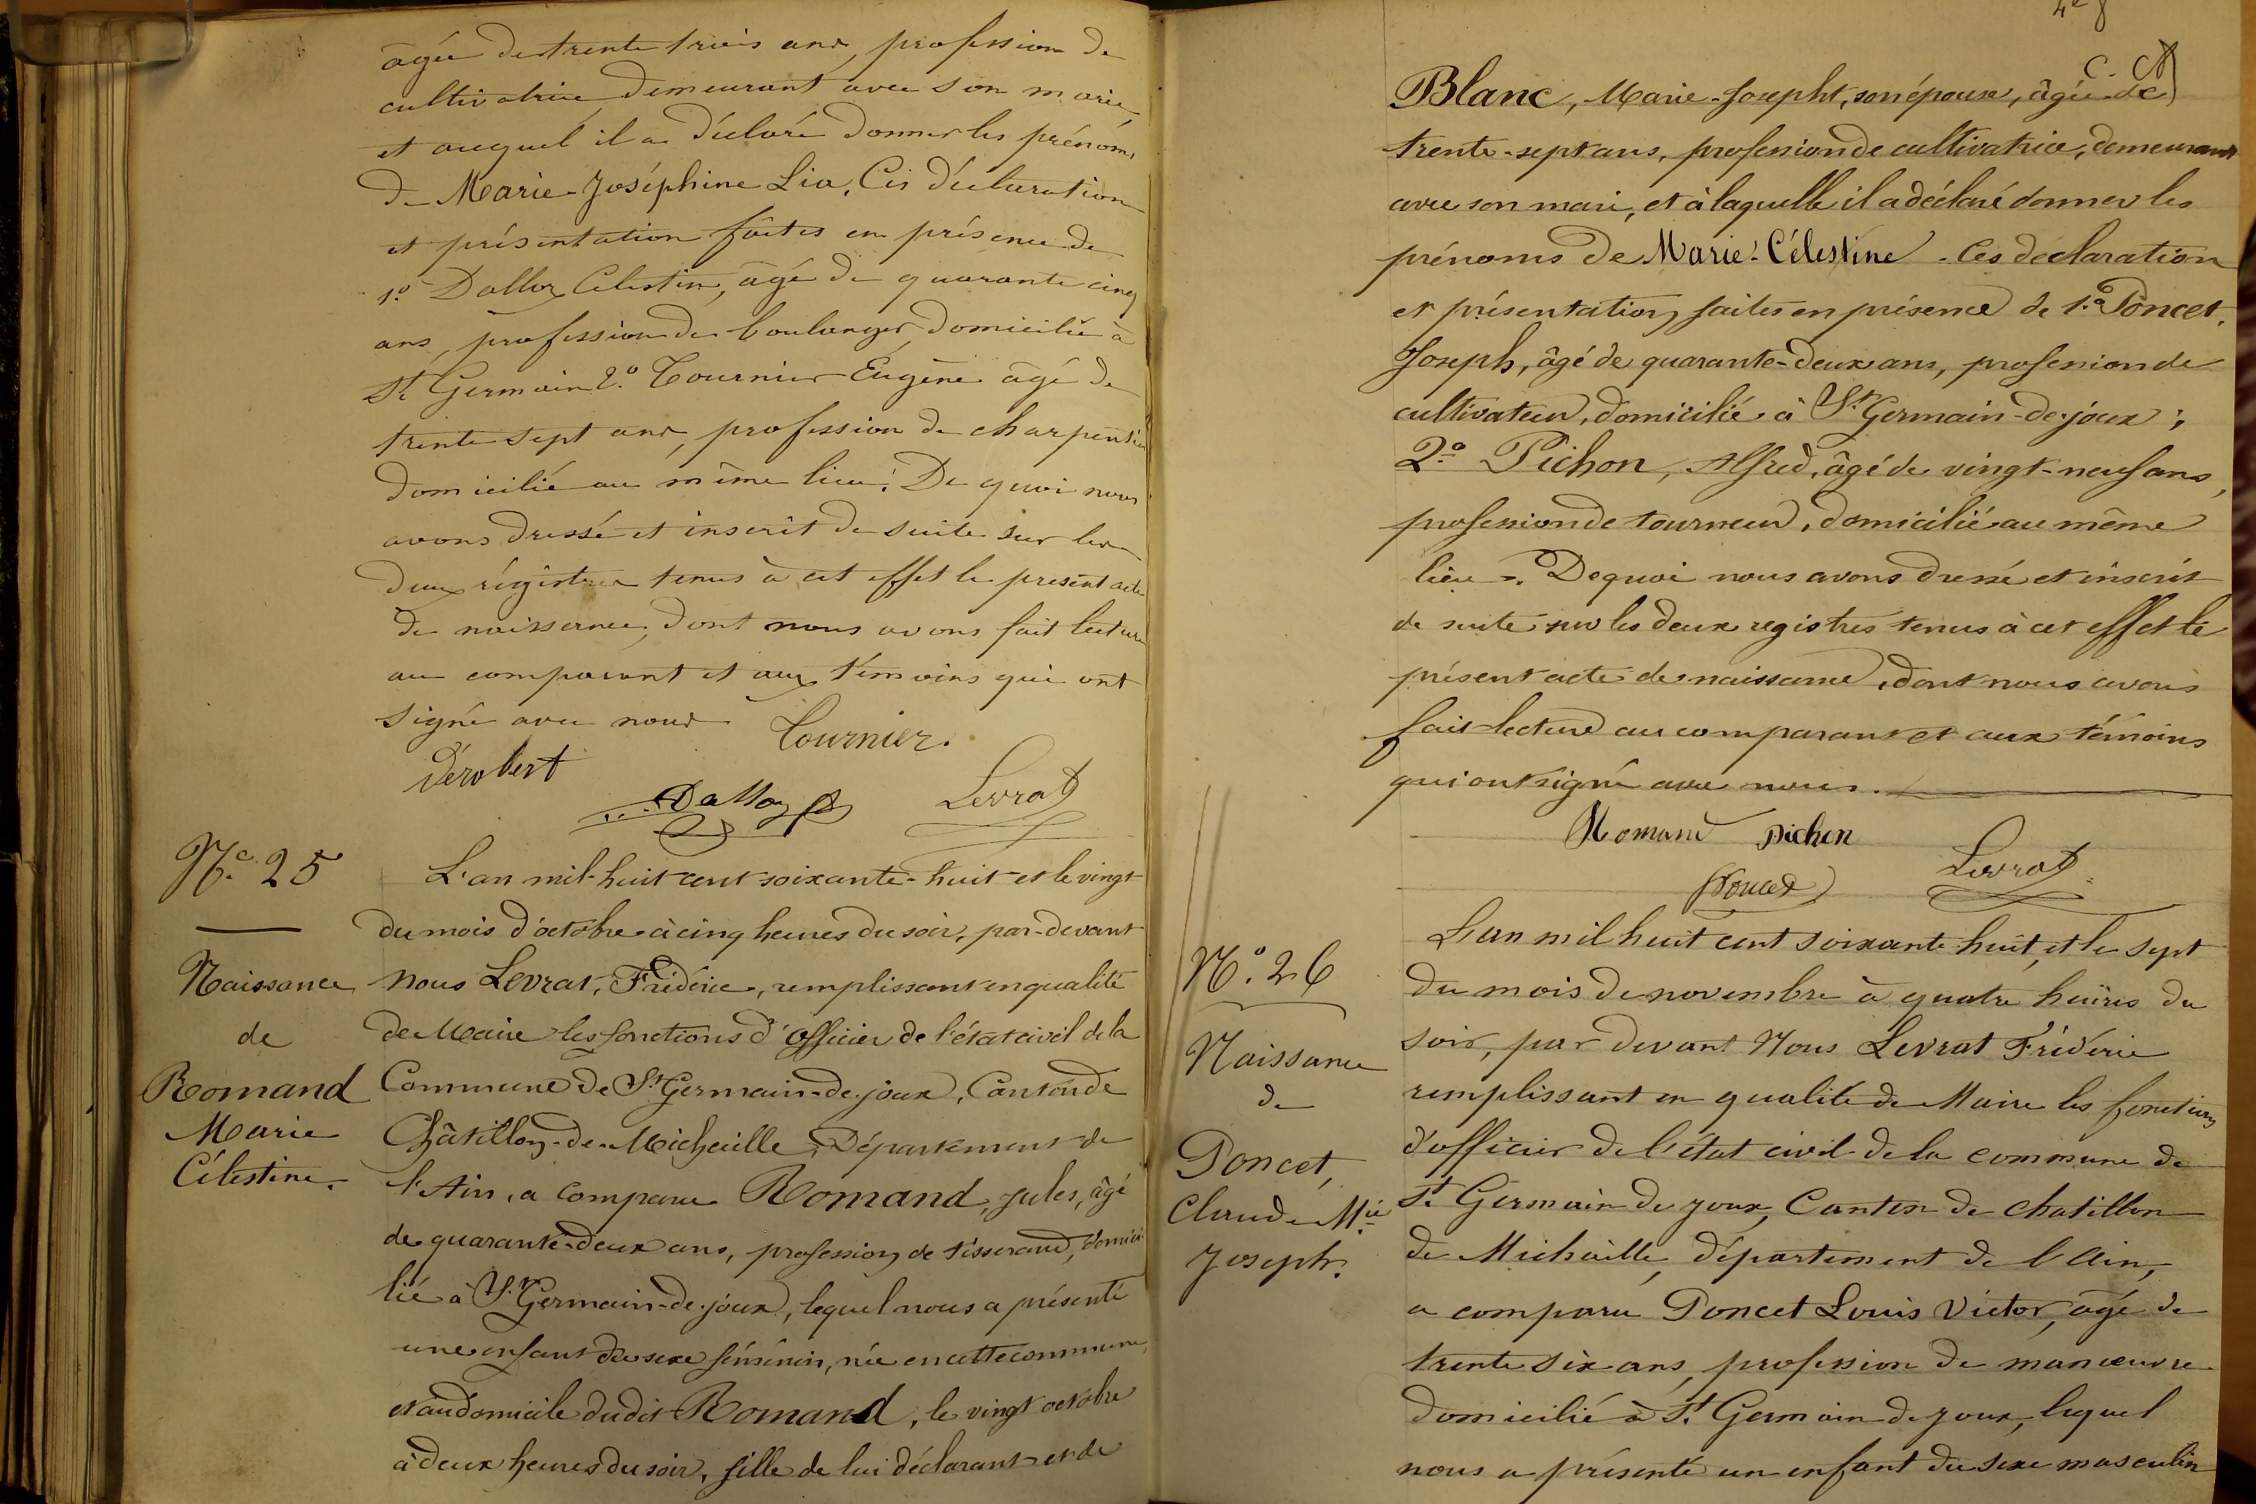 âgée de trente trois ans, profession de
cultivatrice, demeurant avec son marie,
et auquel il a déclaré donner les prénoms
de Marie Joséphine Lia. Ces déclaration
et présentation faites en présence de
1º Dalloz Célestin, âgé de quarante cinq
ans, profession de boulanger, domicilié à
St Germain 2º Tournier Eugène âgé de
trente sept ans, profession de charpentier
domicilié au même lieu. De quoi nous
avons dressé et inscrit de suite sur les
deux régistres tenus à cet effet le présent acte
de naissance, dont nous avons fait lecture
au comparant et aux témoins qui ont
signé avec nous
Tournier.
Dérobert
Dalloz
Levrat
Nº 25
Naissance
de
Romand
Marie
Célestine.
L'an mil-huit cent soixante-huit et le vingt
du mois d'octobre à cinq heures du soir, par-devant
nous Levrat, Frédéric, remplissant en qualité
de Maire les fonctions d'officier de l'état civil de la
Commune de St Germain-de-joux, Canton de
Châtillon-de-Michaille, Département de
l'Ain, a comparu Romand, Jules, âgé
de quarante-deux ans, profession de tisserand, domici-
lié à St Germain-de-joux, lequel nous a présenté
une enfant du sexe féminin, née en cette commune,
et au domicile dudit Romand, le vingt octobre
à deux heures du soir, fille de lui déclarant et de
Blanc, Marie-Josepht, son épouse, âgée de
trente-sept ans, profession de cultivatrice, demeurant
avec son mari, et à laquelle il a déclaré donner les
prénoms de Marie-Célestine. Ces déclaration
et présentation faites en présence de 1º Poncet,
Joseph, âgé de quarante-deux ans, profession de
cultivateur, domicilié à St Germain-de-joux;
2º Pichon, Alfred, âgé de vingt-neuf ans,
profession de tourneur, domicilié au même
lieu. De quoi nous avons dressé et inscrit
de suite sur les deux registres tenus à cet effet le
présent acte de naissance, dont nous avons
fait lecture au comparant et aux témoins
qui ont signé avec nous.
Romand Pichon
Poncet
Levrat
Nº 26
Naissance
de
Poncet,
Claude Mie
Joseph.
L'an mil huit cent soixante huit, et le sept
du mois de novembre à quatre heures du
soir, par devant Nous Levrat Frédéric
remplissant en qualité de Maire les fonctions
d'officier de l'état civil de la commune de
St Germain de joux, Canton de Chatillon
de Michaille, département de l'Ain,
a comparu Poncet Louis Victor, âgé de
trente six ans, profession de manœuvre
domicilié à St Germain de joux, lequel
nous a présenté un enfant du sexe masculin